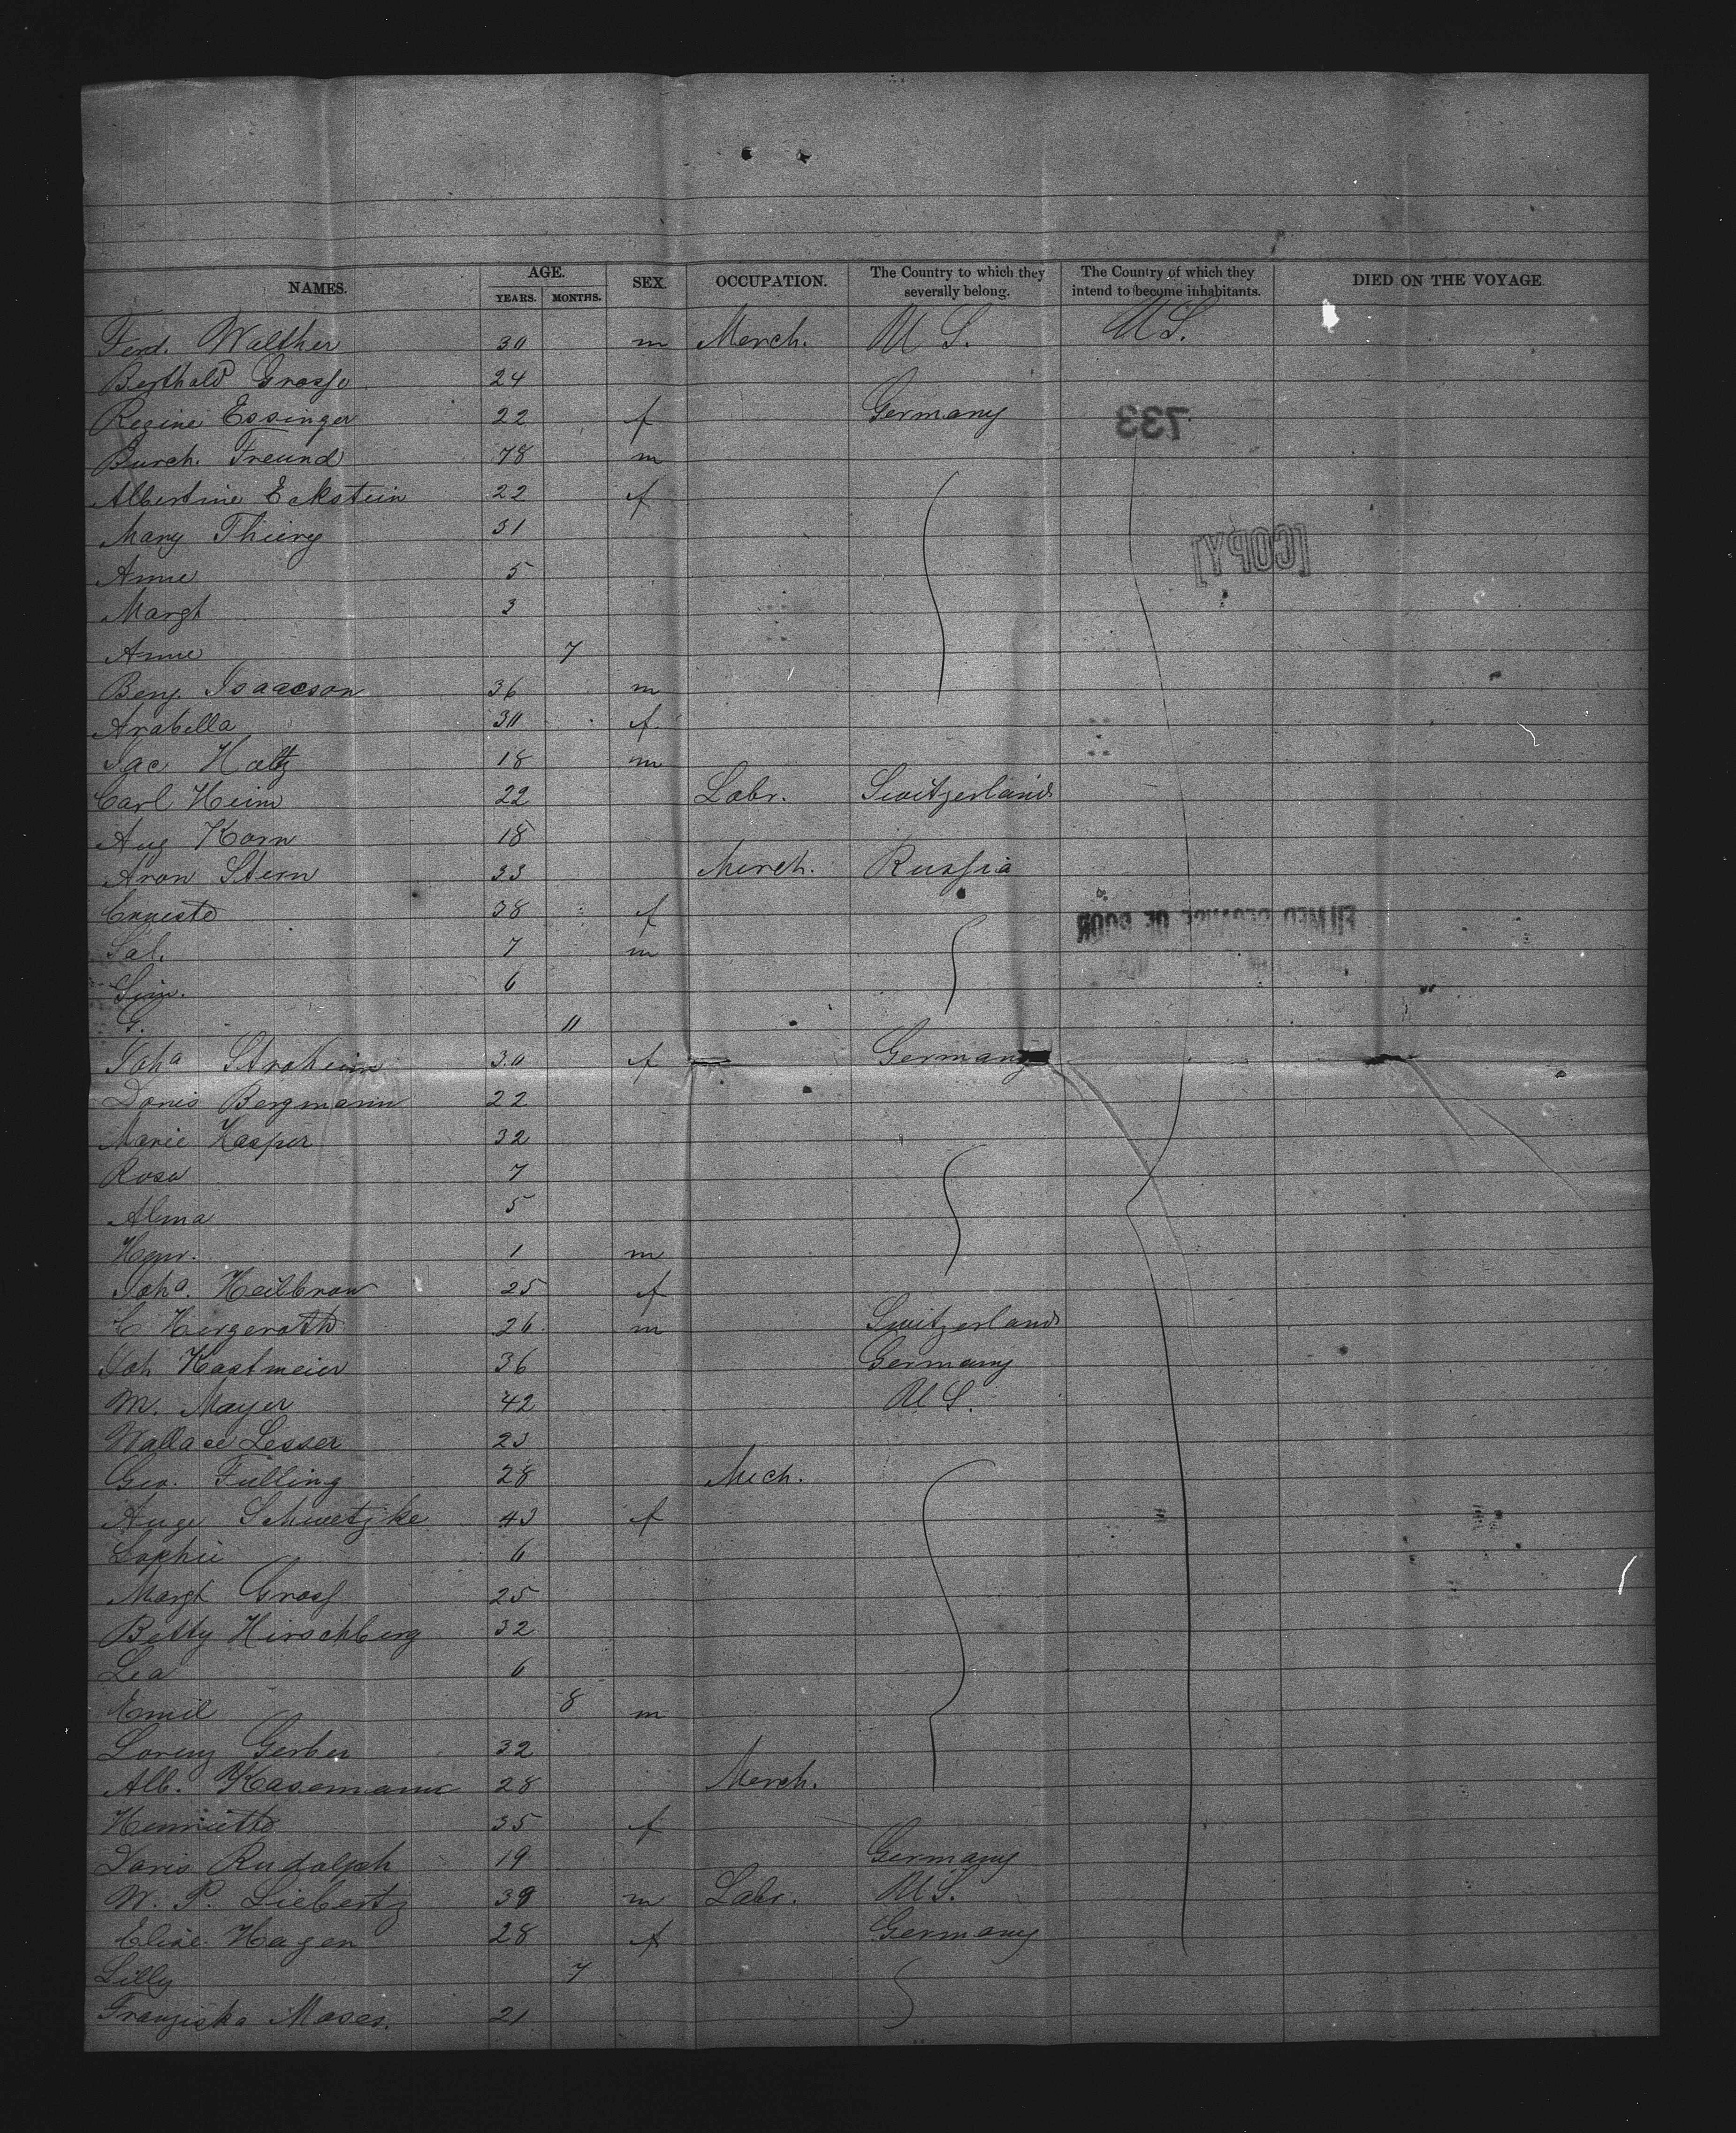 NAMES. AGE. YEARS. MONTHS. SEX. OCCUPATION. The Country to which they severally belong. The Country of which they intend to become inhabitants. DIED ON THE VOYAGE.
Ferd. Walther 30 m Merch. U S. U S.
Berthold Grosse 24
Regine Essinger 22 f Germany
733
Burch. Freund 78 m
Albertine Eckstein 22 f
Mary Thiery 31
[COPY]
Anne 5
Margt 3
Anne 7
Benj. Isaacson 36 m
Arabella 30 f
Jac Holtz 18 m
Carl Heim 22 Labr. Switzerland
Aug Korn 18
Aron Stern 33 Merch. Russia
38 f
Sal. 7 m
Sim. 6
G. 11
Joha Stroheim 30 f Germany
Doris Bergmann 22
Marie Kasper 32
Rosa 7
Alma 5
Henr. 1 m
Joha. Heilbron 25 f
C Hergerath 26 m Switzerland
Joh Kastmeier 36 Germany
M. Mayer 42 U S.
Wallace Lesser 23
Geo. Fulling 28 Mech.
Auge Schwetzke 43 f
Sophie 6
Margt Gross 25
Betty Hirschberg 32
Lea 6
Emil 8 m
Lorenz Gerber 32
Alb. Kasemann 28 Merch.
Henriette 35 f
Doris Rudolph 19 Germany
W. P. Liebertz 39 m Labr. U S.
Elise Hagen 28 f Germany
Lilly 7
Franziska Moses. 21